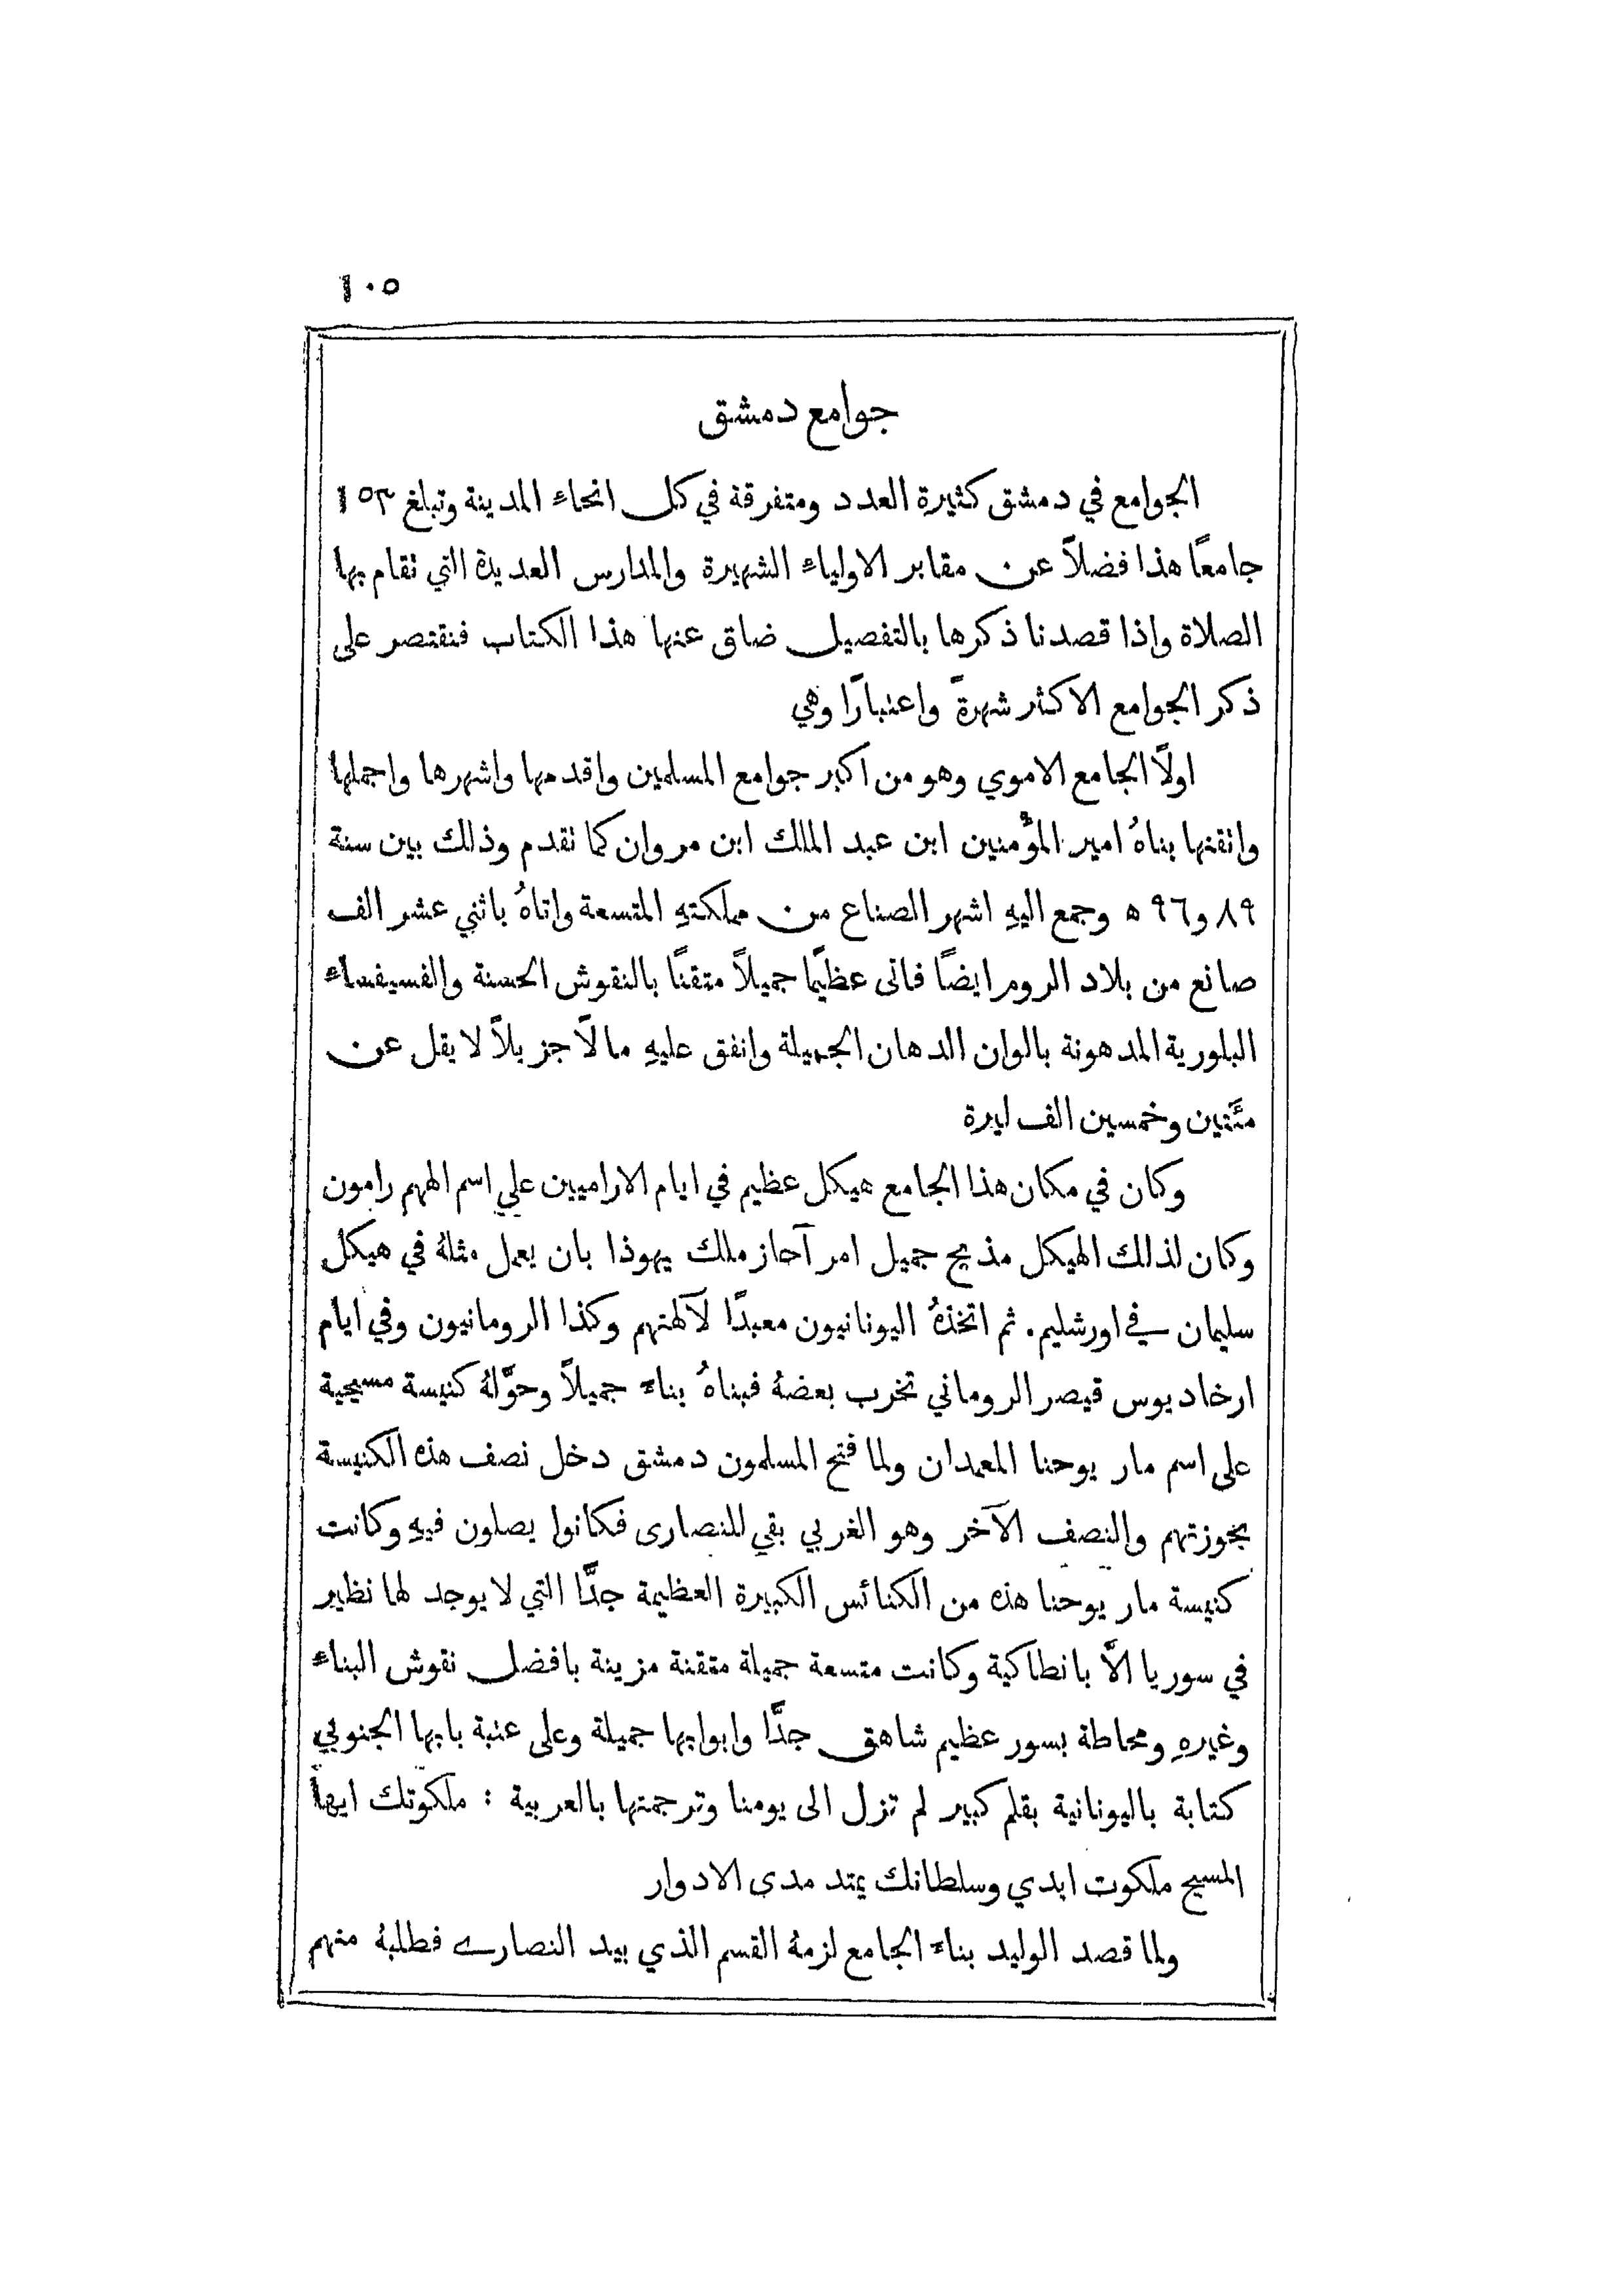 ١٠٥
جوامع دمشق
الجوامع في دمشق كثيرة العدد ومتفرقة في كل انحاء المدينة وتبلغ ١٥٣
جامعًا هذا فضلاً عن مقابر الاولياء الشهيرة والمدارس العديدة التي تقام بها
الصلاة واذا قصدنا ذكرها بالتفصيل ضاق عنها هذا الكتاب فنقتصر على
ذكر الجوامع الاكثر شهرةً واعتبارًا وهي
اولاً الجامع الاموي وهو من اكبر جوامع المسلمين واقدمها واشهرها واجملها
واتقنها بناهُ امير المؤمنين ابن عبد الملك ابن مروان كما تقدم وذلك بين سنة
٨٩ و٩٦ ه وجمع اليهِ اشهر الصناع من مملكتهِ المتسعة واتاهُ باثني عشر الف
صانع من بلاد الروم ايضًا فاتى عظيمًا جميلاً متقنًا بالنقوش الحسنة والفسيفساء
البلورية المدهونة بالوان الدهان الجميلة وانفق عليهِ مالاً جزيلاً لا يقل عن
مئتين وخمسين الف ليرة
وكان في مكان هذا الجامع هيكل عظيم في ايام الاراميين على اسم الههم رامون
وكان لذلك الهيكل مذبح جميل امر آحاز ملك يهوذا بان يعمل مثلهُ في هيكل
سليمان في اورشليم. ثم اتخذهُ اليونانيون معبدًا لآلهتهم وكذا الرومانيون وفي ايام
ارخاديوس قيصر الروماني تخرب بعضهُ فبناهُ بناءً جميلاً وحوَّلهُ كنيسة مسيحية
على اسم مار يوحنا المعمدان ولما فتح المسلمون دمشق دخل نصف هذه الكنيسة
بحوزتهم والنصف الآخر وهو الغربي بقي للنصارى فكانوا يصلون فيهِ وكانت
كنيسة مار يوحنا هذه من الكنائس الكبيرة العظيمة جدًّا التي لا يوجد لها نظير
في سوريا الاَّ بانطاكية وكانت متسعة جميلة متقنة مزينة بافضل نقوش البناء
وغيرهِ ومحاطة بسور عظيم شاهق جدًّا وابوابها جميلة وعلى عتبة بابها الجنوبي
كتابة باليونانية بقلم كبير لم تزل الى يومنا وترجمتها بالعربية : ملكوتك ايها
المسيح ملكوت ابدي وسلطانك يمتد مدى الادوار
ولما قصد الوليد بناءَ الجامع لزمهُ القسم الذي بيد النصارى فطلبهُ منهم